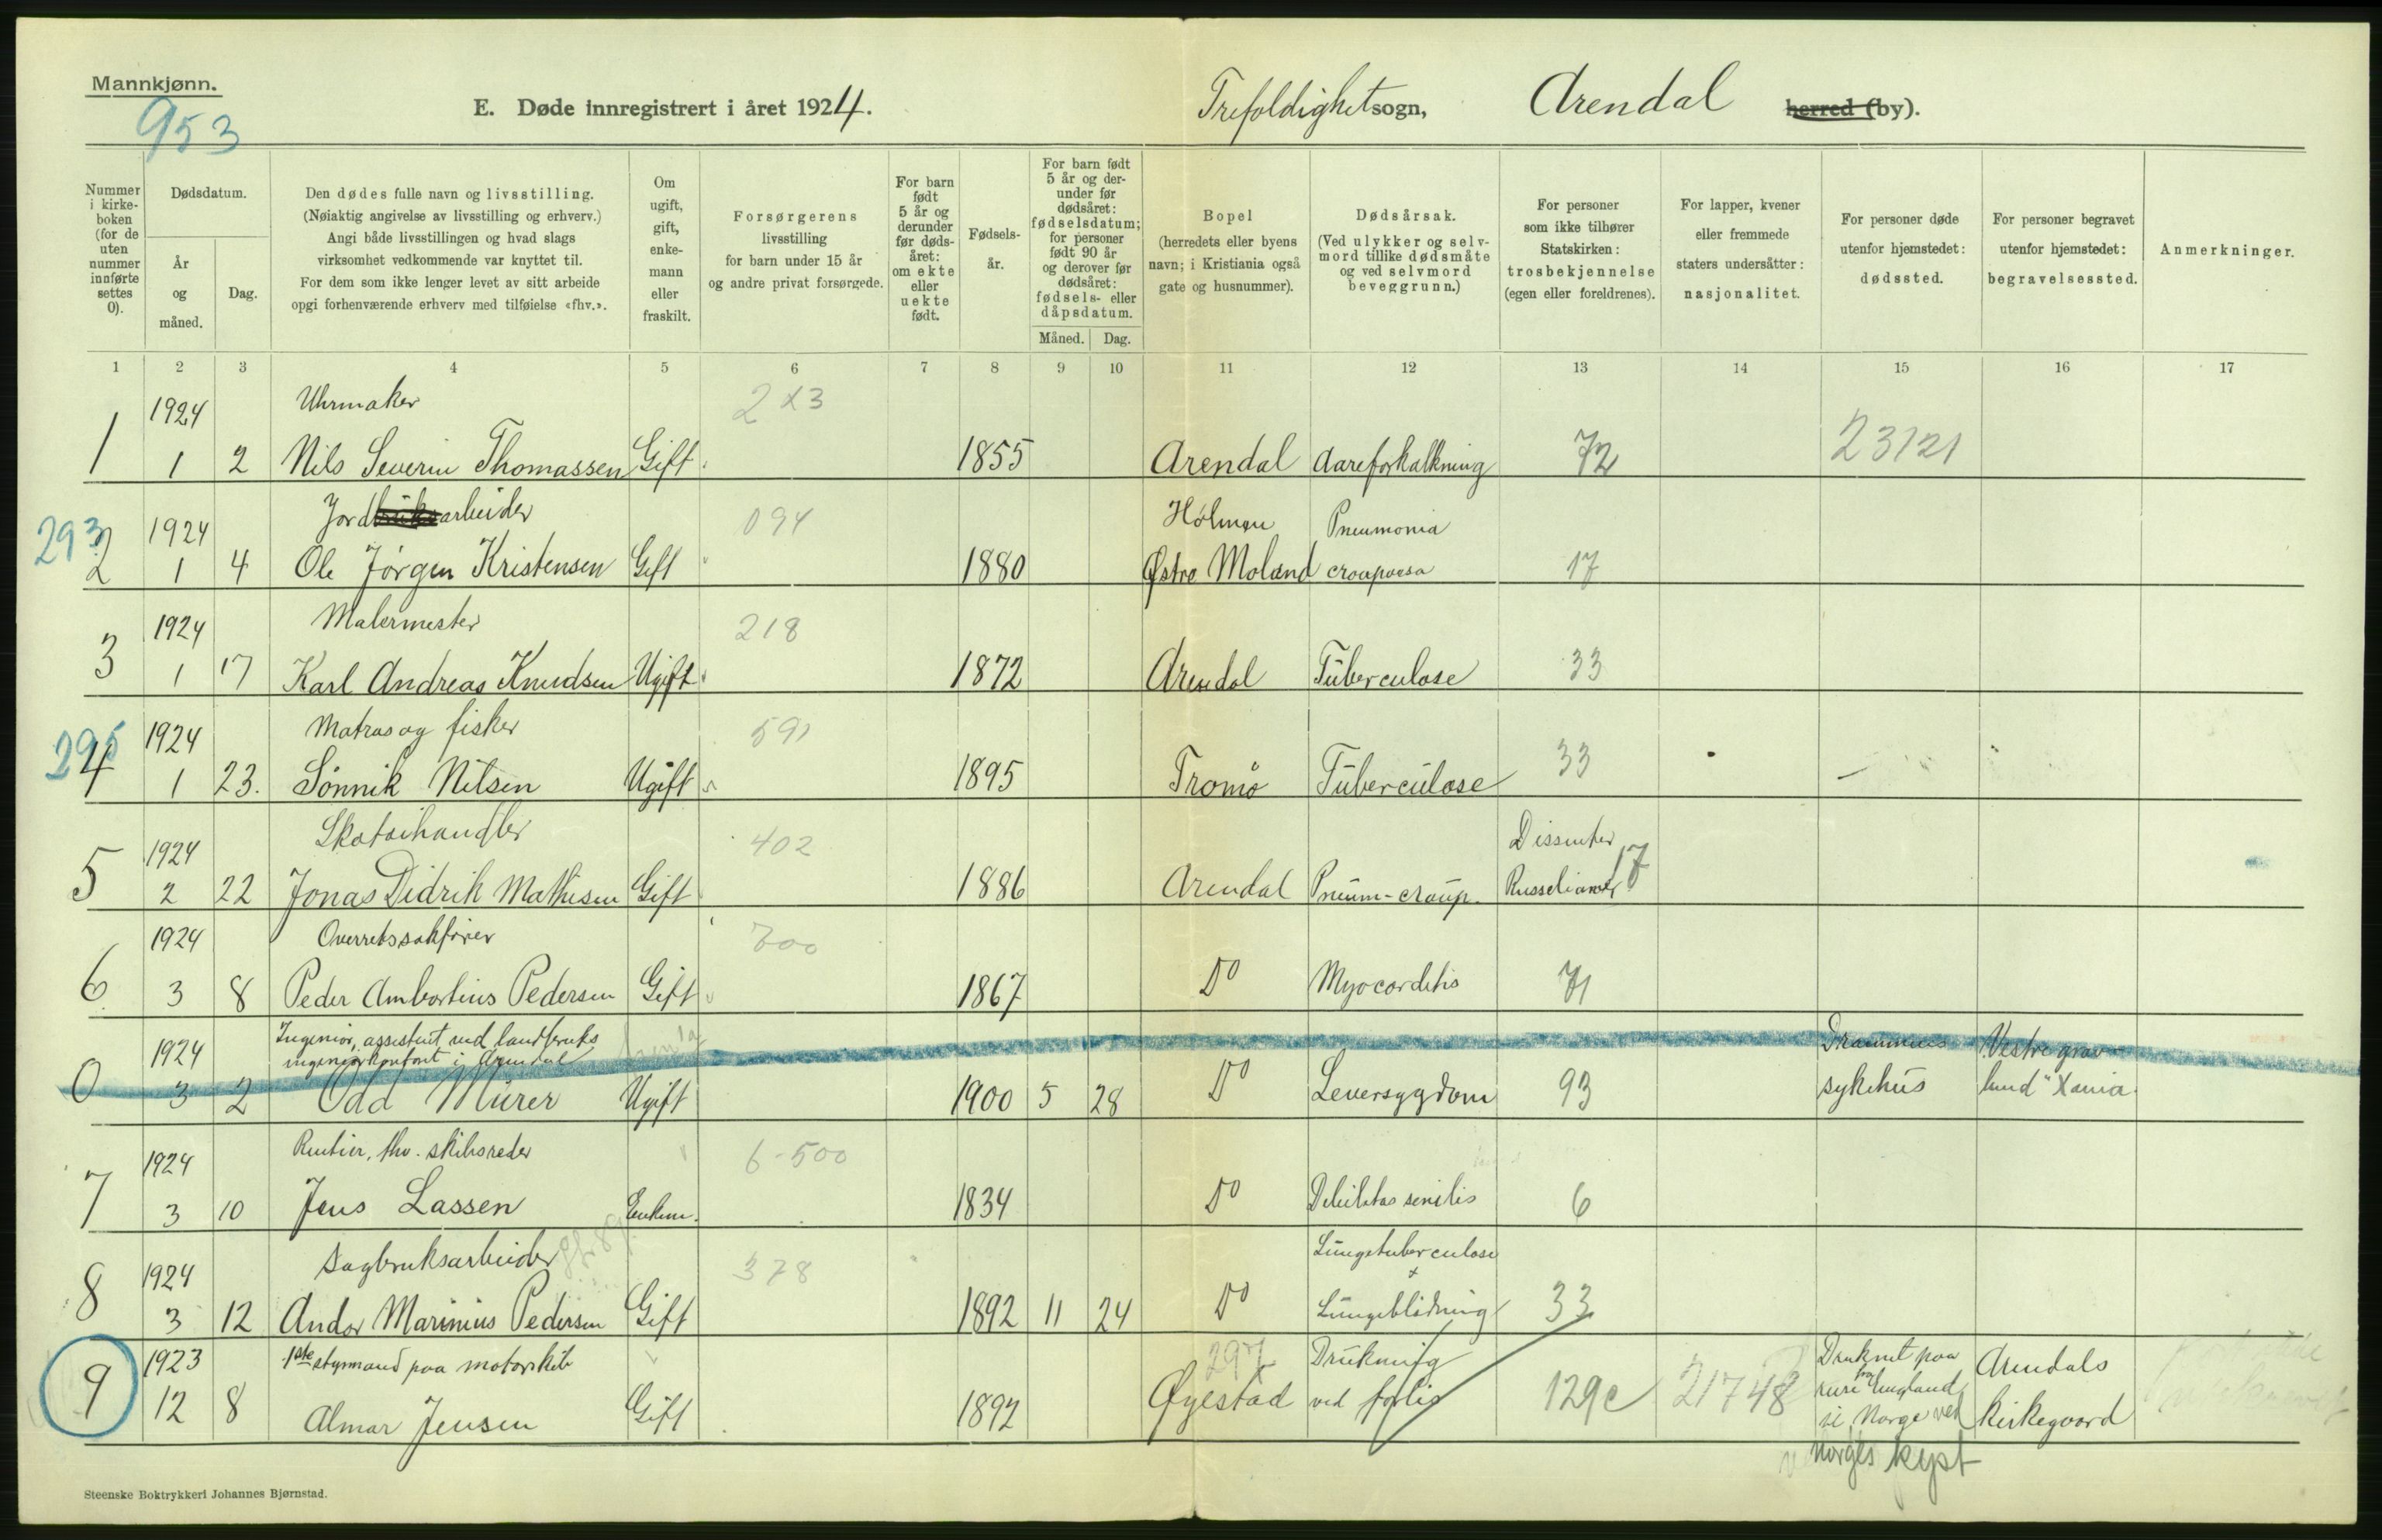 Mannkjønn.
953
E. Døde innregistrert i året 1924.
Trefoldighet sogn, Arendal herred (by).
Nummer i kirke-boken (for de uten nummer innførte settes 0).
Dødsdatum.
År og måned.
Dag.
Den dødes fulle navn og livsstilling.
(Nøiaktig angivelse av livsstilling og erhverv.)
Angi både livsstillingen og hvad slags
virksomhet vedkommende var knyttet til.
For dem som ikke lenger levet av sitt arbeide
opgi forhenværende erhverv med tilføielse «fhv.».
Om ugift, gift, enke-mann eller fraskilt.
Forsørgerens livsstilling for barn under 15 år og andre privat forsørgede.
For barn født 5 år og derunder før døds-året: om ekte eller uekte født.
Fødsels-år.
For barn født 5 år og der-under før dødsåret: fødselsdatum; for personer født 90 år og derover før dødsåret: fødsels- eller dåpsdatum.
Måned. Dag.
Bopel (herredets eller byens navn; i Kristiania også gate og husnummer).
Dødsårsak.
(Ved ulykker og selv-mord tillike dødsmåte og ved selvmord beveggrunn.)
For personer som ikke tilhører Statskirken: trosbekjennelse (egen eller foreldrenes).
For lapper, kvener eller fremmede staters undersåtter: nasjonalitet.
For personer døde utenfor hjemstedet: dødssted.
For personer begravet utenfor hjemstedet: begravelsessted.
Anmerkninger.
1 2 3 4 5 6 7 8 9 10 11 12 13 14 15 16 17
1924 Uhrmaker 213
1 1 2 Nils Severin Thomassen Gift 1855 Arendal Aareforkalkning 72 23121
293 1924 Jordbruksarbeider 094 Holmen Pneumonia
2 1 4 Ole Jörgen Kristensen Gift 1880 Østre Moland crouposa 17
1924 Malermester 218
3 1 17 Karl Andreas Knudsen Ugift 1872 Arendal Tüberculose 33
295 1924 Matros og fisker 591
4 1 23. Sönnik Nilsen Ugift 1895 Tromö Tüberculose 33
1924 Skotöihandler 402 Dissenter
5 2 22 Jonas Didrik Mathisen Gift 1886 Arendal Pneum-croup. Russelianer 17
1924 Overretssakförer 700
6 3 8 Peder Ambortius Pedersen Gift 1867 Do Myocarditis 71
1924 Ingeniör, assistent ved landbruks Drammens Vestre grav-
ingeniörkontoret i Arendal
0 3 2 Odd Mürer Ugift 1900 5 28 Do Leversygdom 93 sykehüs lund" Xania.
1924 Rentier, fhv. skibsreder 6-500
7 3 10 Jens Lassen Enkem. 1834 Do Debilitas senilis 6
1924 Sagbruksarbeider 378 Lüngetuberculose +
8 3 12 Andor Marinius Pedersen Gift 1892 11 24 Do Lüngeblödning 33
1923 1ste styrmand paa motorskib 297 Drükning Druknet paa Arendals
9 12 8 Almar Jensen Gift 1892 Øyestad ved forlis 129c 21748 reise fra England kirkegaard
til Norge ved
Norges kyst
Steenske Boktrykkeri Johannes Bjørnstad.